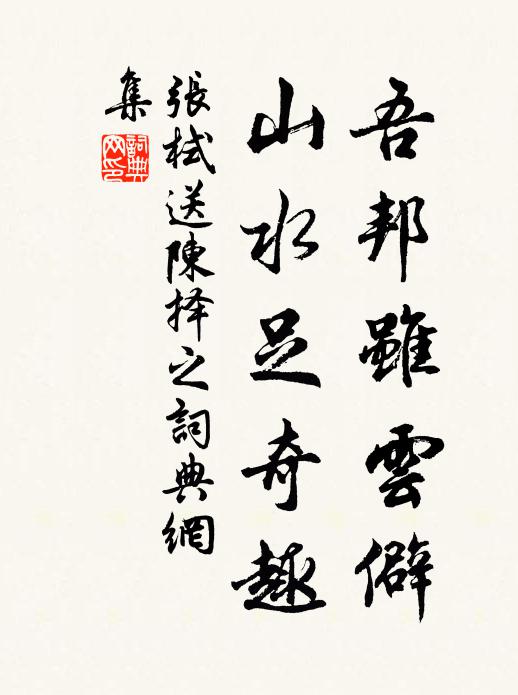 吾邦雖雲僻
山水足奇趣
張栻送陳择之詞典網
集
詞典
网印